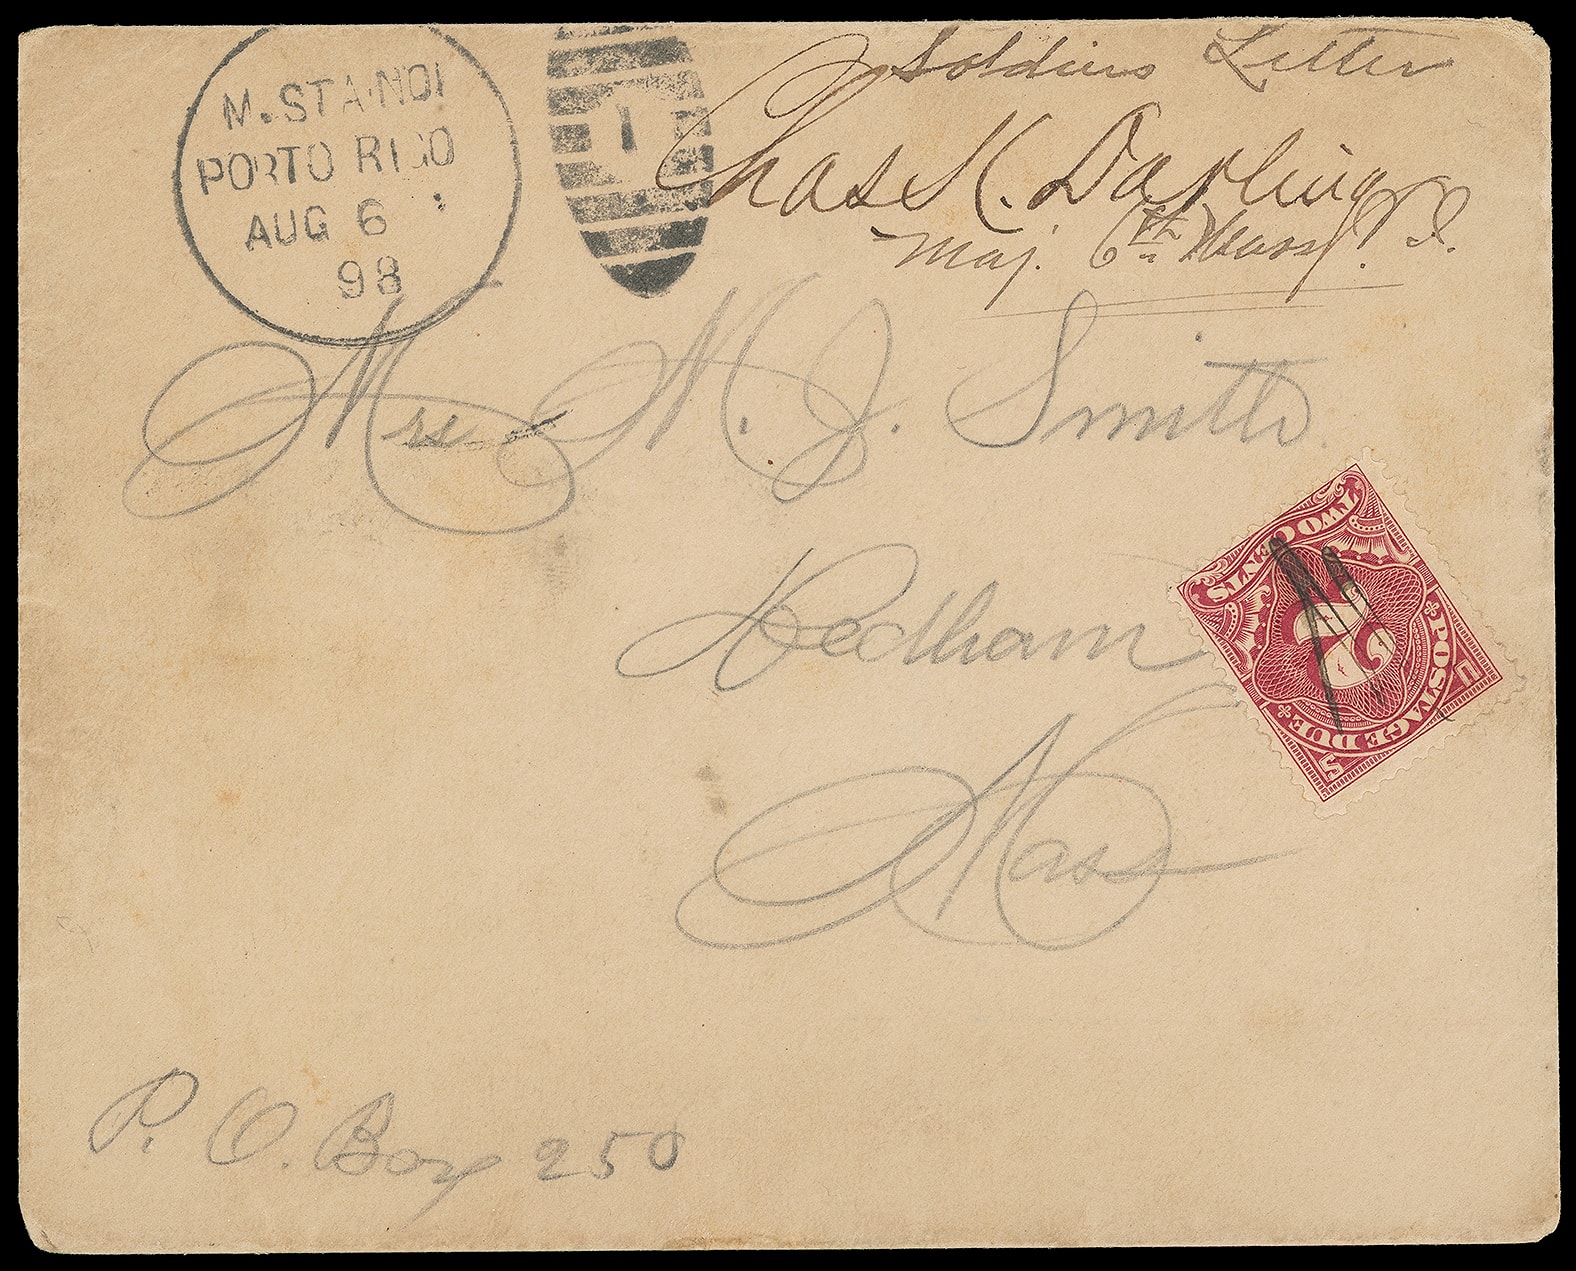 M. STA. NO 1
PORTO RICO
AUG 6
98
1
Soldiers Letter
Chas K. Darling
Maj. 6th Mass.
Mrs M. J. Smith
Dedham
Mass
TWO CENTS
2
POSTAGE DUE
U S
P. O. Box 250